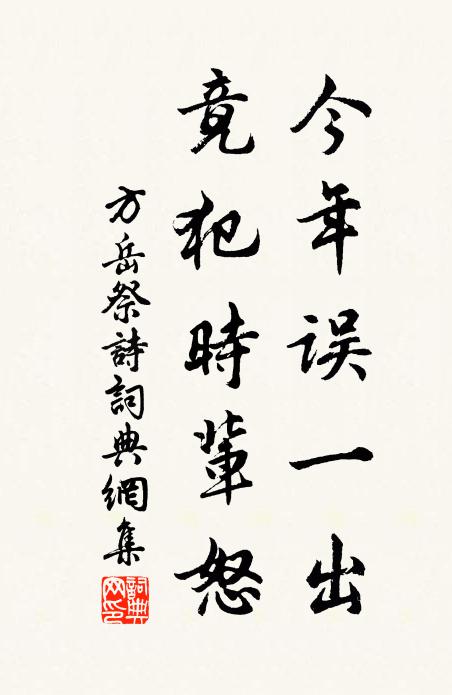 今年误一出
竟犯時輩怒
方岳祭詩詞典網集
詞典